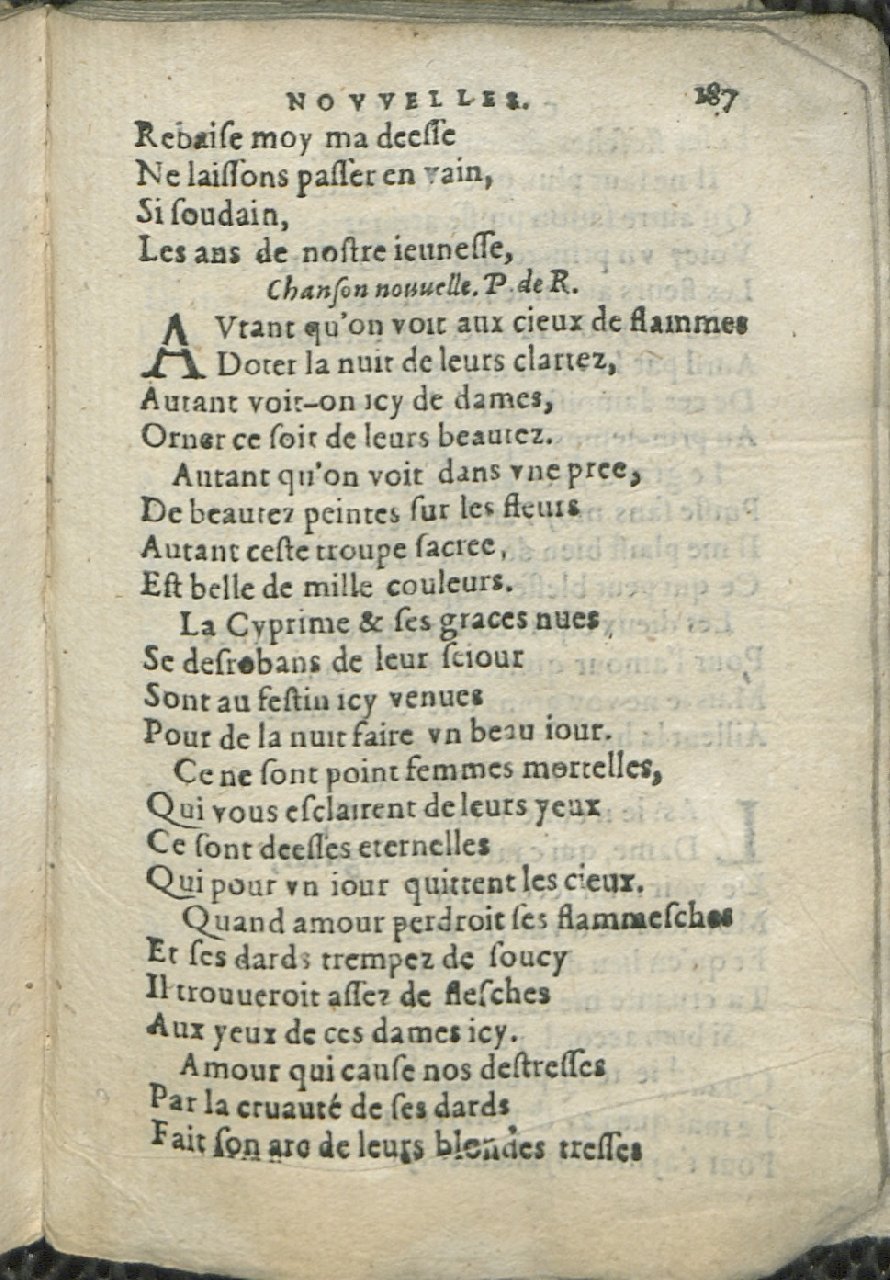 NOVVELLES. 187
Rebaise moy ma deesse
Ne laiſſons paſſer en vain,
Si ſoudain,
Les ans de noſtre ieuneſſe,
Chanſon nouuelle. P. de R.
AVtant qu'on voit aux cieux de flammes
Dorer la nuit de leurs clartez,
Autant voit-on icy de dames,
Orner ce ſoir de leurs beautez.
Autant qu'on voit dans vne pree,
De beautez peintes ſur les fleurs
Autant ceſte troupe ſacree,
Eſt belle de mille couleurs.
La Cyprime & ſes graces nues,
Se deſrobans de leur ſeiour
Sont au feſtin icy venues
Pour de la nuit faire vn beau iour.
Ce ne ſont point femmes mortelles,
Qui vous eſclairent de leurs yeux
Ce ſont deeſſes eternelles
Qui pour vn iour quittent les cieux.
Quand amour perdroit ſes flammeſches
Et ſes dards trempez de ſoucy
Il trouueroit aſſez de fleſches
Aux yeux de ces dames icy.
Amour qui cauſe nos deſtreſſes
Par la cruauté de ſes dards,
Fait ſon arc de leurs blondes treſſes